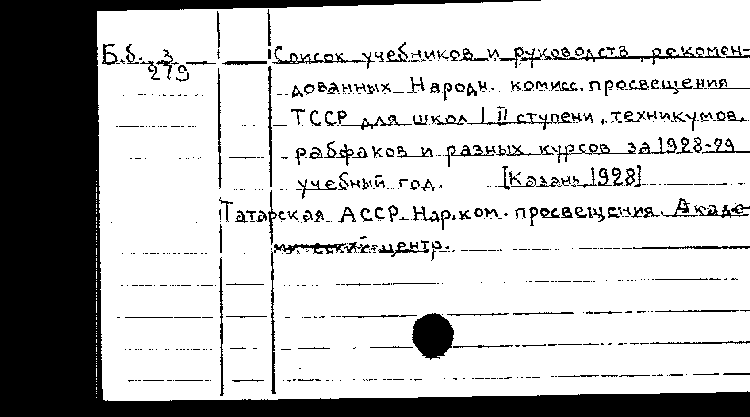 Б.б. 3 Список учебников и руководств, рекомен-
279
дованных Народн. комисс. просвещения
ТССР для школ I II ступени, техникумов,
рабфаков и разных курсов за 1928-29
учебный год. [Казань, 1928]
Татарская АССР. Нар.ком. просвещения. Акаде-
мический центр.